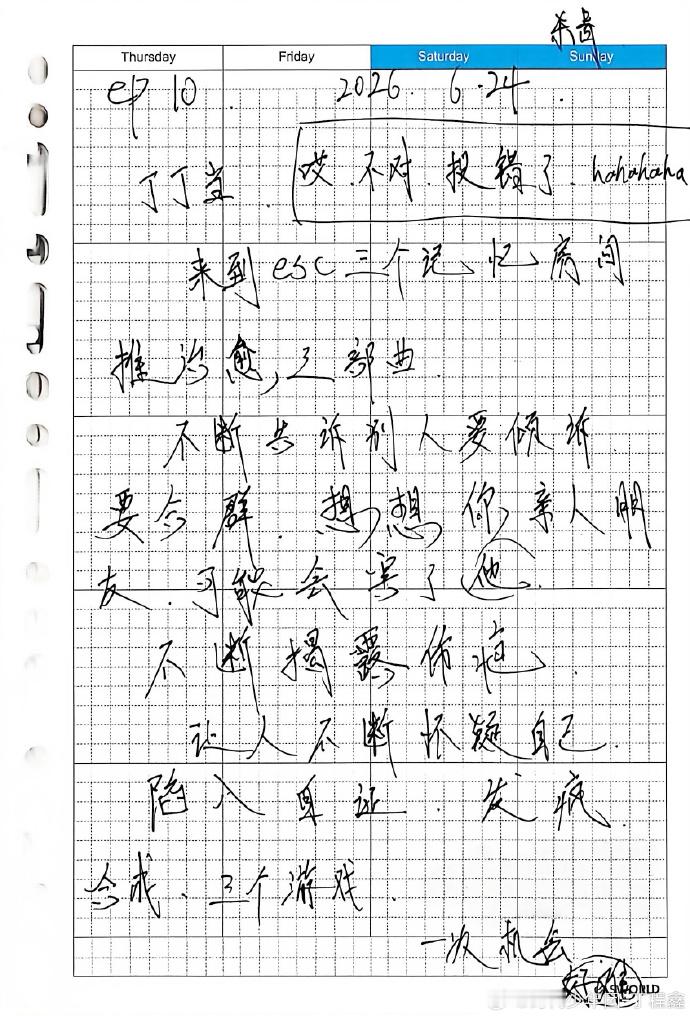 Thursday Friday Saturday Sunday
ep 10. 2026. 6.24.
丁丁堂. 哎.不对.投错了.hahahaha
来到esc三个记忆房间
推治愈,三部曲.
不断告诉别人要倾诉
要合群.想,想你亲人朋
友.可能会害了他.
不断揭露伤疤.
让人不断怀疑自己.
陷入自证.发疯.
合成.三个游戏.
一次机会
好难
WORLD
丁程鑫